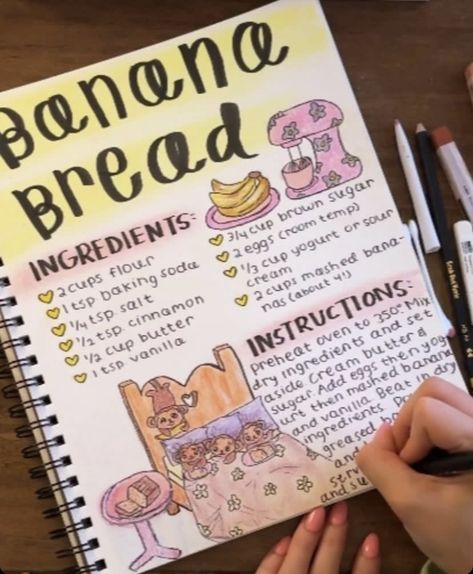 Banana
Bread
INGREDIENTS:
2 cups flour
1 tsp baking soda
1/4 tsp salt
1/2 tsp. cinnamon
1/2 cup butter
1 tsp vanilla
3/4 cup brown sugar
2 eggs (room temp)
1/3 cup yogurt or sour
cream
2 cups mashed bana-
nas (about 4!)
INSTRUCTIONS:
preheat oven to 350. Mix
dry ingredients and set
aside. Cream butter &
sugar. Add eggs then yog-
urt then mashed banana
and vanilla. Beat in dry
ingredients.
greased
and
and